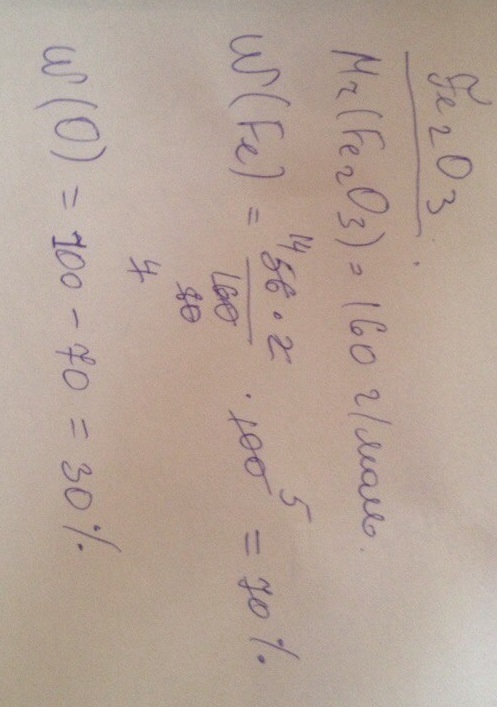 Fe₂O₃.
Mr(Fe₂O₃) = 160 г/моль.
W(Fe) = 56 · 2 / 160 · 100 = 70%.
14
80
4
5
W(O) = 100 - 70 = 30%.